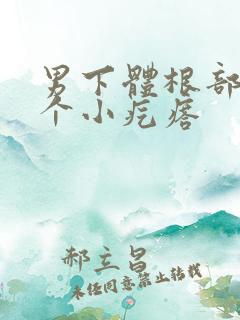 男下體根部
个小疙瘩
郝立昌
未经同意禁止转载